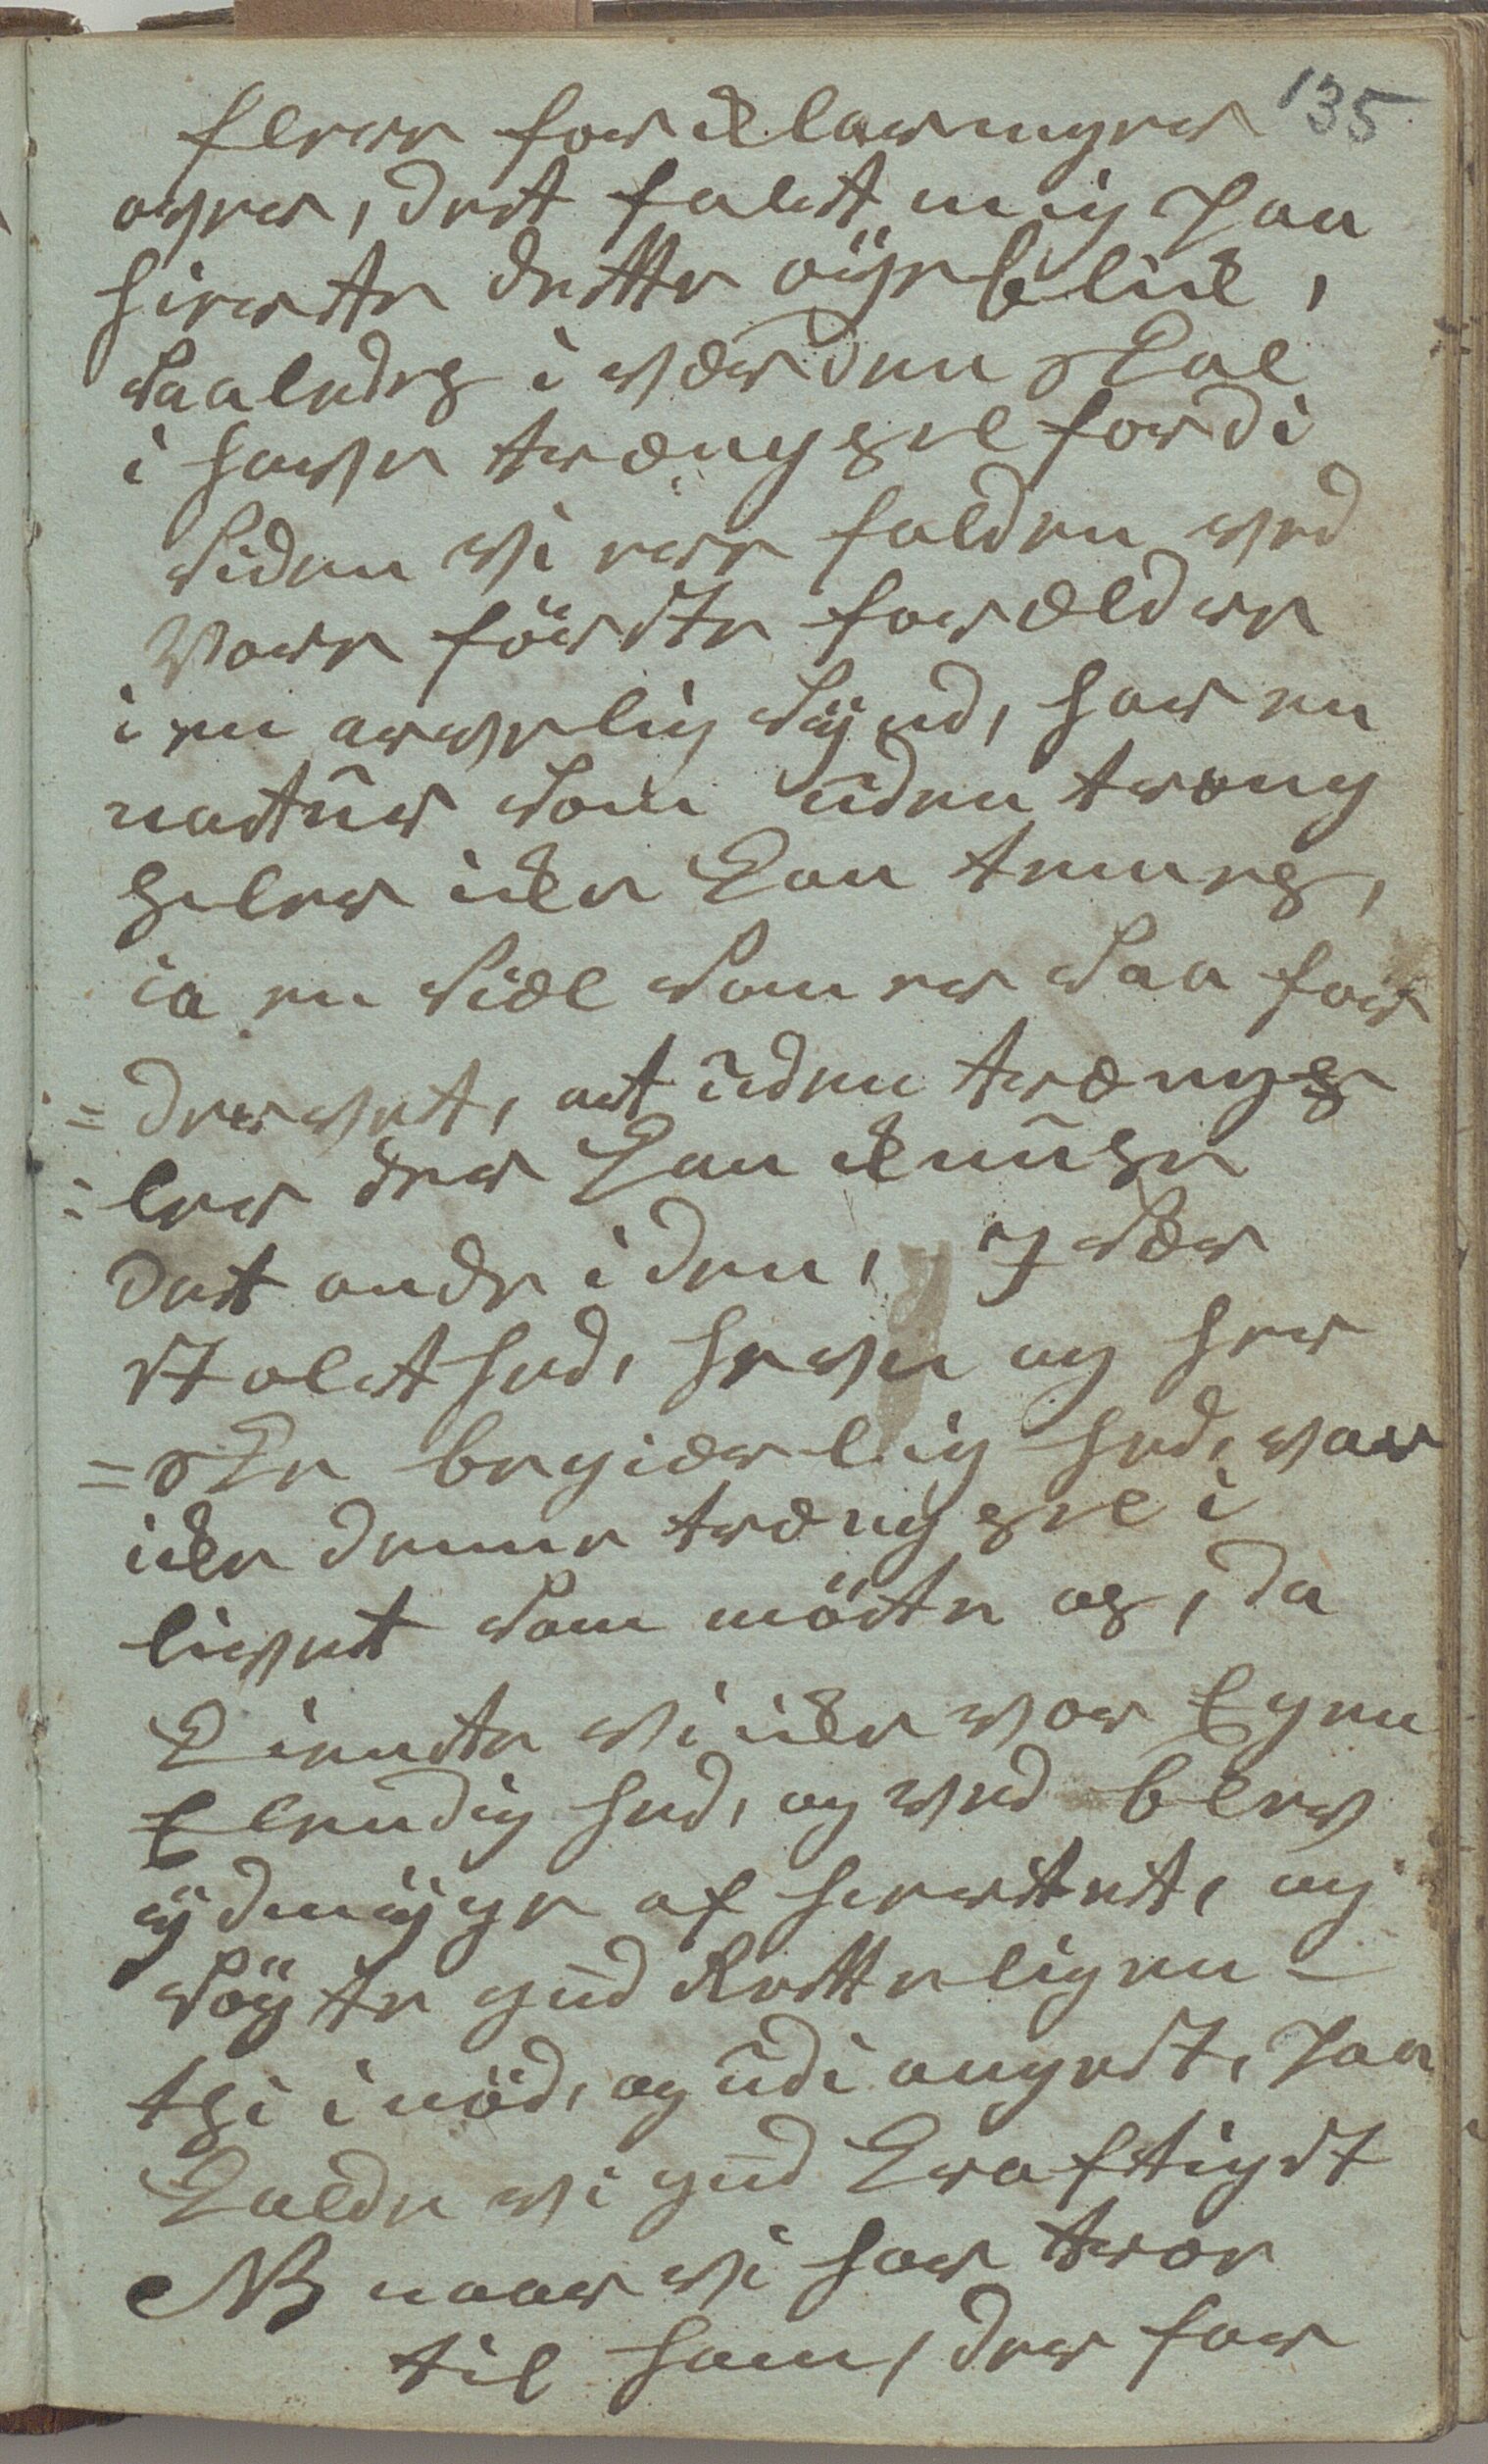 135
flere forklarniger
oger, det falt mig paa
hierte dette öyeblik,
Saaledes i Værden skal
i have trængsel fordi
Siden vi ere falden ved
Vore förste forældre
i en arvelig Synd, har en
natur som uden træng
=seler ikke kan temes,
ia en Siæl som er Saa for
=dervet, at uden trængs
=ler der kan knuse
det onde i den, I sær
Stolthed, hevn og her
=ske begiærlighed, var
ikke denne trængsel i
livet som mötte os, da
kiendte vi ikke vor Egen
Elendighed, og ved blev
ydmyge af hiertet, og
Söyte gud Retteligen
thi i nöd, og udi angest, paa
kalde vi gud kraftigst
NB naar vi har troe
til ham, der for